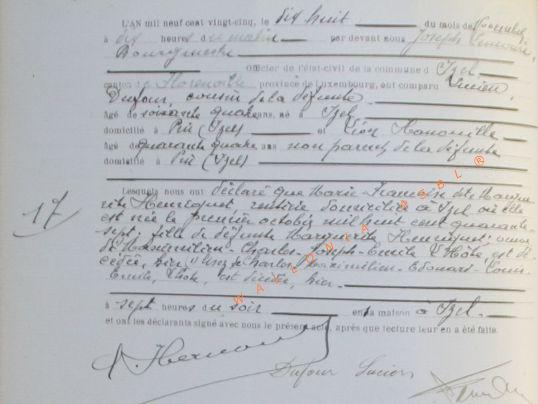 L'AN mil neuf cent vingt-cinq, le dix huit du mois de Novembre
à dix heures du matin par devant nous Joseph
Bourgmestre
Officier de l'état-civil de la commune d'Izel
canton de Florenville, province de Luxembourg, ont comparu Lucien
Dufour, cousin de la défunte
âgé de soixante quatre ans, né à Izel
domicilié à Pin (Izel) et Léon Hanonille
âgé de quarante quatre ans non parent de la défunte
domicilié à Pin (Izel)
17
Lesquels nous ont déclaré que Marie-Françoise dite
Henricquet, rentière domiciliée à Izel où elle
est née le premier octobre mil huit cent quarante-
sept, fille de défunte Marguerite Henricquet, veuve
de Maximilien-Charles-Joseph-Emile L'Hote, est dé-
cédée, hier
Emile, L'hote, est décédée, hier.
à sept heures du soir en la maison à Izel.
et ont les déclarants signé avec nous le présent acte, après que lecture leur en a été faite.
Dufour Lucien
WALLONIA ASBL ®